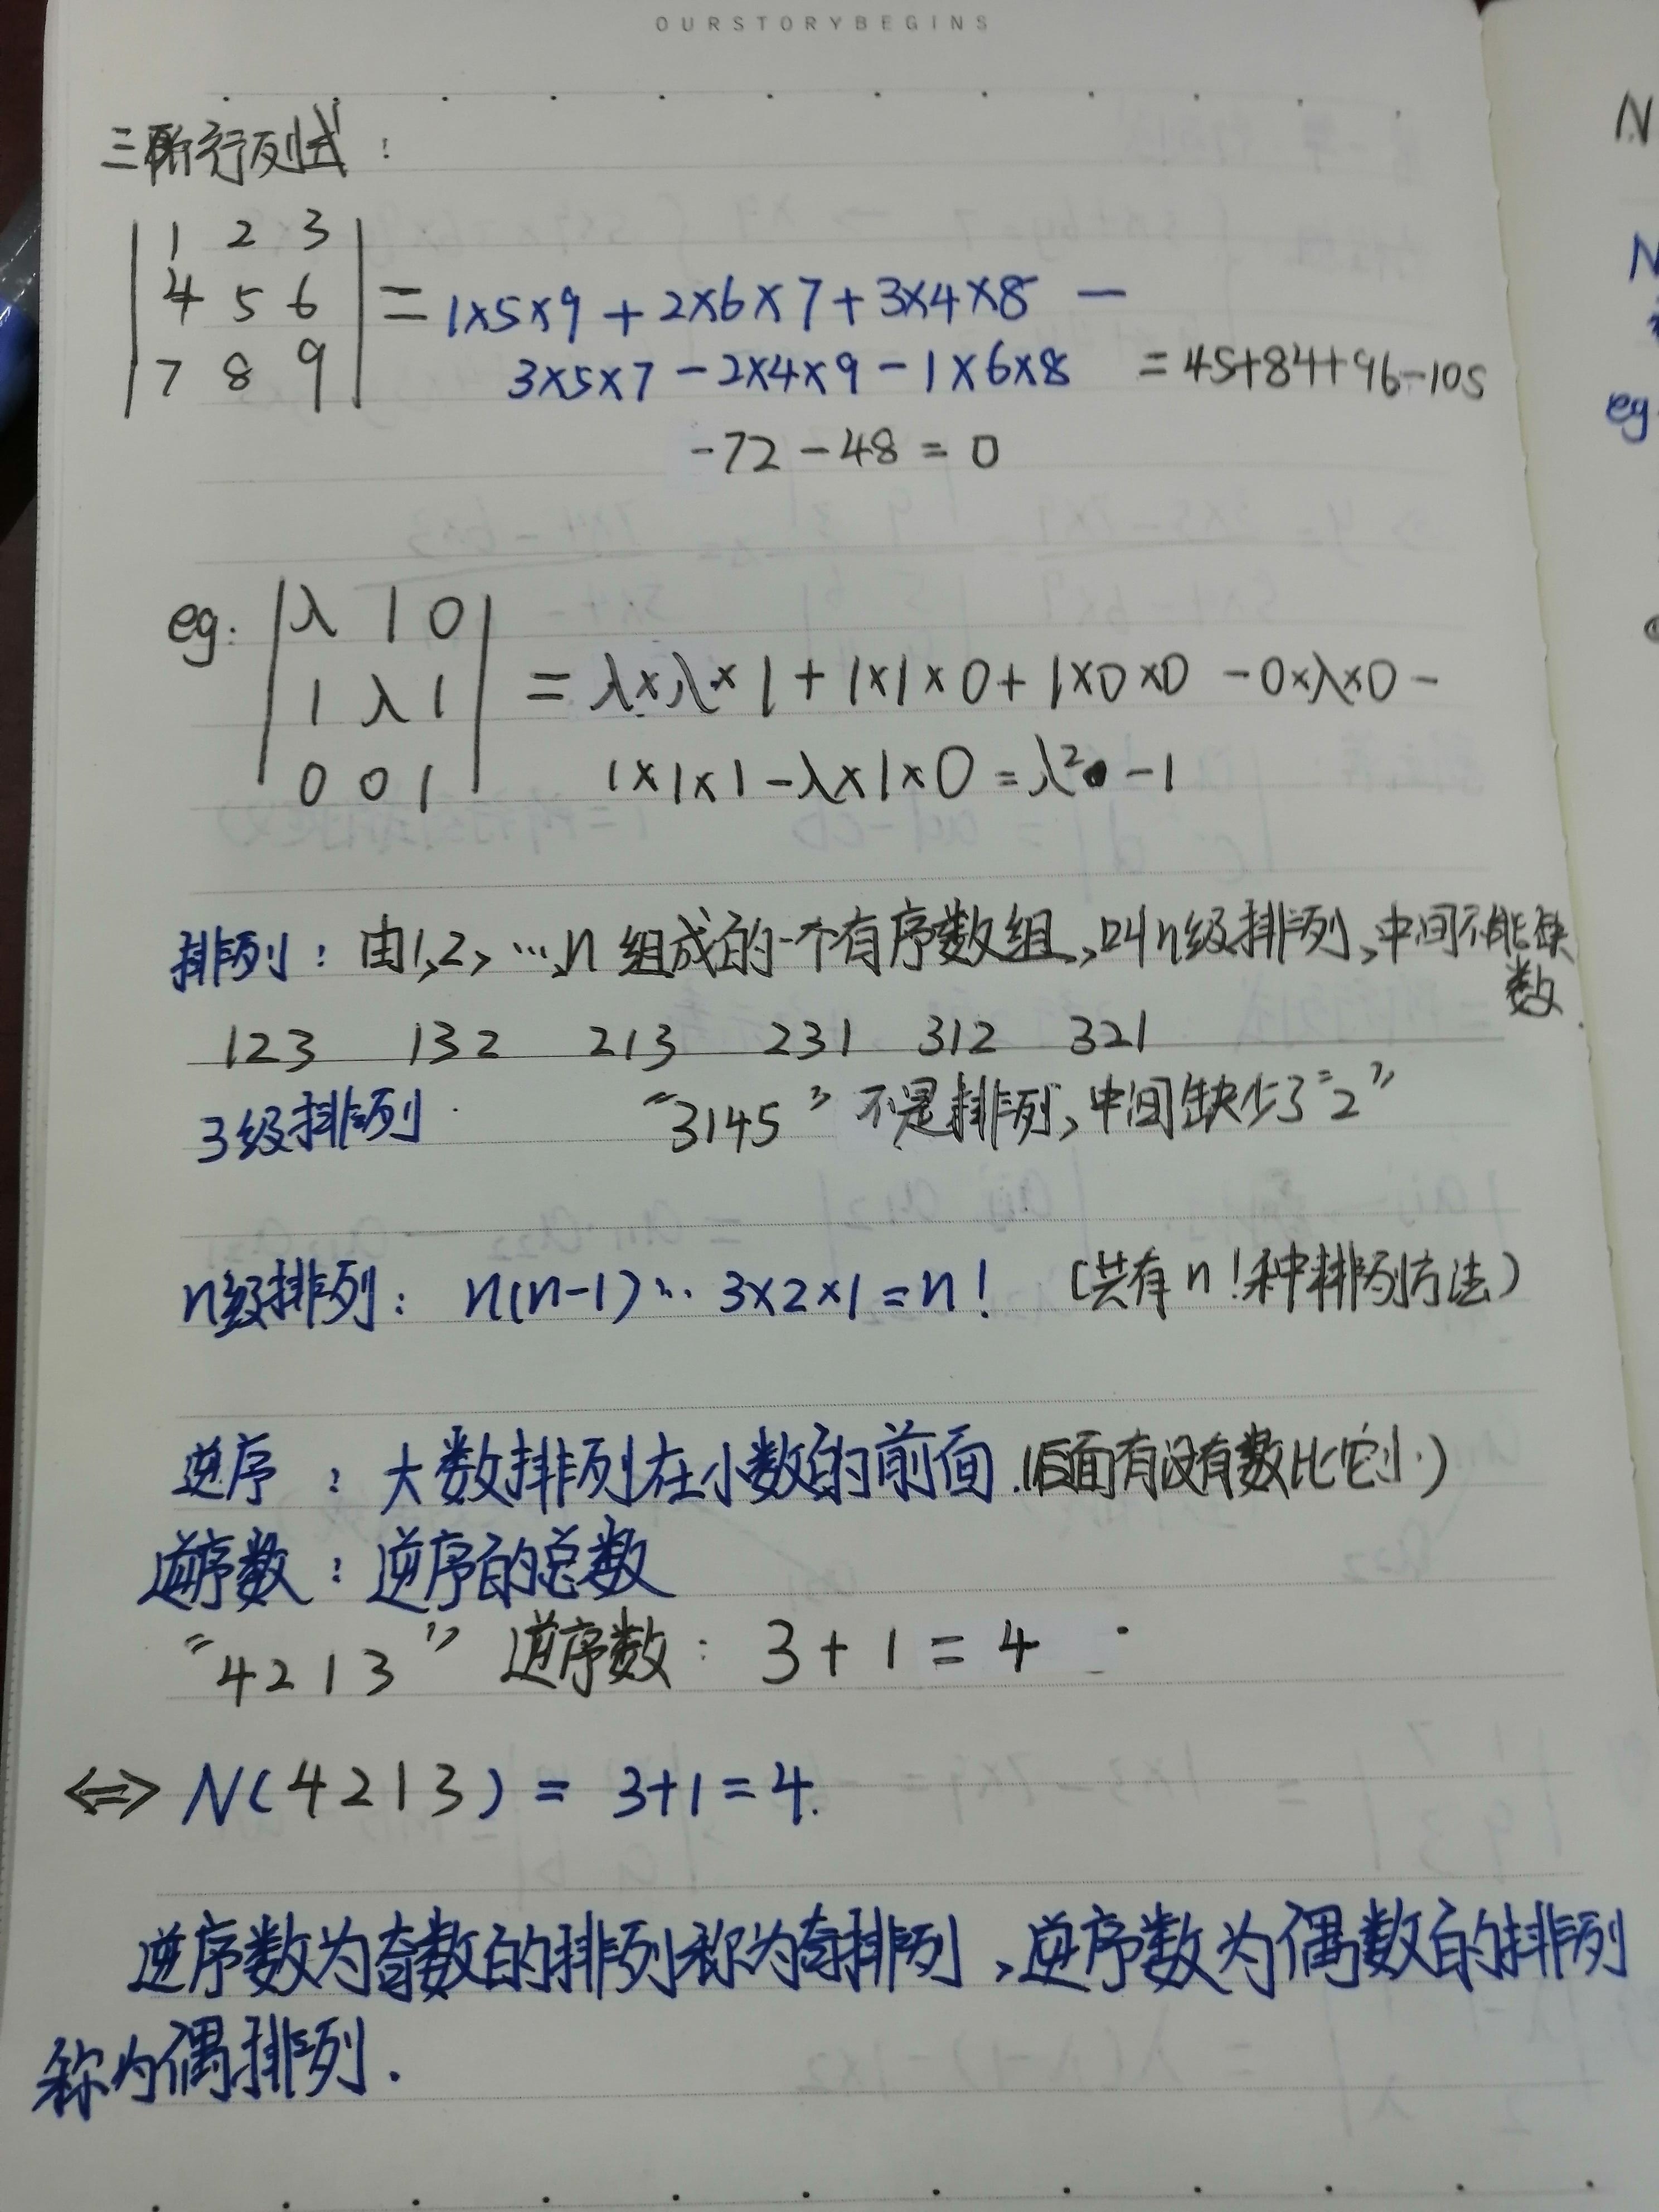 OURSTORYBEGINS
三阶行列式:
| 1 2 3 |
| 4 5 6 | = 1×5×9 + 2×6×7 + 3×4×8 -
| 7 8 9 | 3×5×7 - 2×4×9 - 1×6×8 = 45+84+96-105
-72-48 = 0
eg. | λ 1 0 |
| 1 λ 1 | = λ×λ×1 + 1×1×0 + 1×0×0 - 0×λ×0 -
| 0 0 1 | 1×1×1 - λ×1×0 = λ² - 1
排列: 由1,2, …,n 组成的一个有序数组, 叫n级排列, 中间不能缺
数.
123 132 213 231 312 321
3级排列 "3145" 不是排列, 中间缺少了"2"
n级排列: n(n-1)… 3×2×1 = n! (共有n!种排列方法)
逆序: 大数排列在小数的前面.(后面有没有数比它小)
逆序数: 逆序的总数
"4213" 逆序数: 3+1=4
⇔ N(4213) = 3+1=4.
逆序数为奇数的排列称为奇排列, 逆序数为偶数的排列
称为偶排列.
N
N
eg